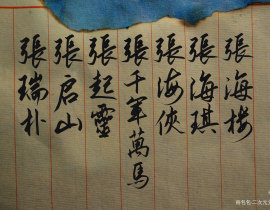 張海楼
張海琪
張海俠
張千軍萬馬
張起靈
張启山
張瑞朴